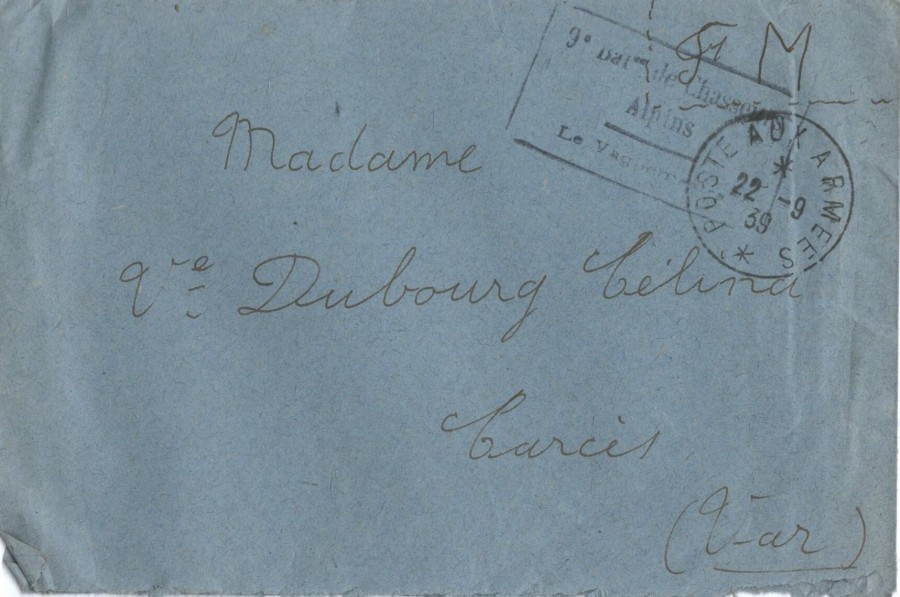 F M
9e Baton de Chasseurs
Alpins
Le Vaguem
POSTE AUX ARMEES
22 - 9
39
Madame
Vve Dubourg Célina
Carcès
(Var)